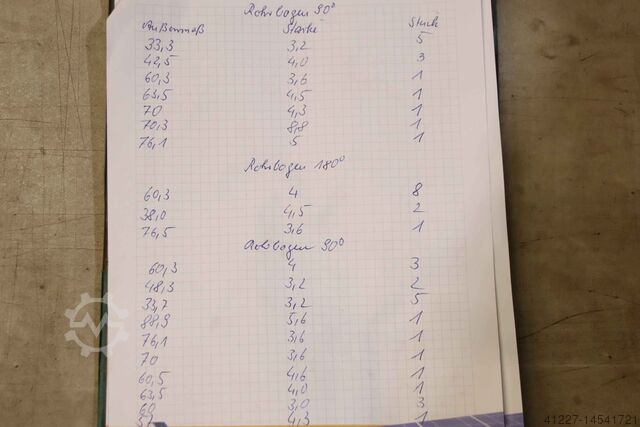 Rohrbogen 90°
Außenmaß Stärke Stück
33,3 3,2 5
42,5 4,0 3
60,3 3,6 1
63,5 4,5 1
70 4,3 1
70,3 8,8 1
76,1 5 1
Rohrbogen 180°
60,3 4 8
38,0 4,5 2
76,5 3,6 1
Rohrbogen 90°
60,3 4 3
48,3 3,2 2
33,7 3,2 5
88,9 5,6 1
76,1 3,6 1
70 3,6 1
60,5 4,6 1
63,5 4,0 1
60 3,0 3
57 4,3 1
41227-14541721